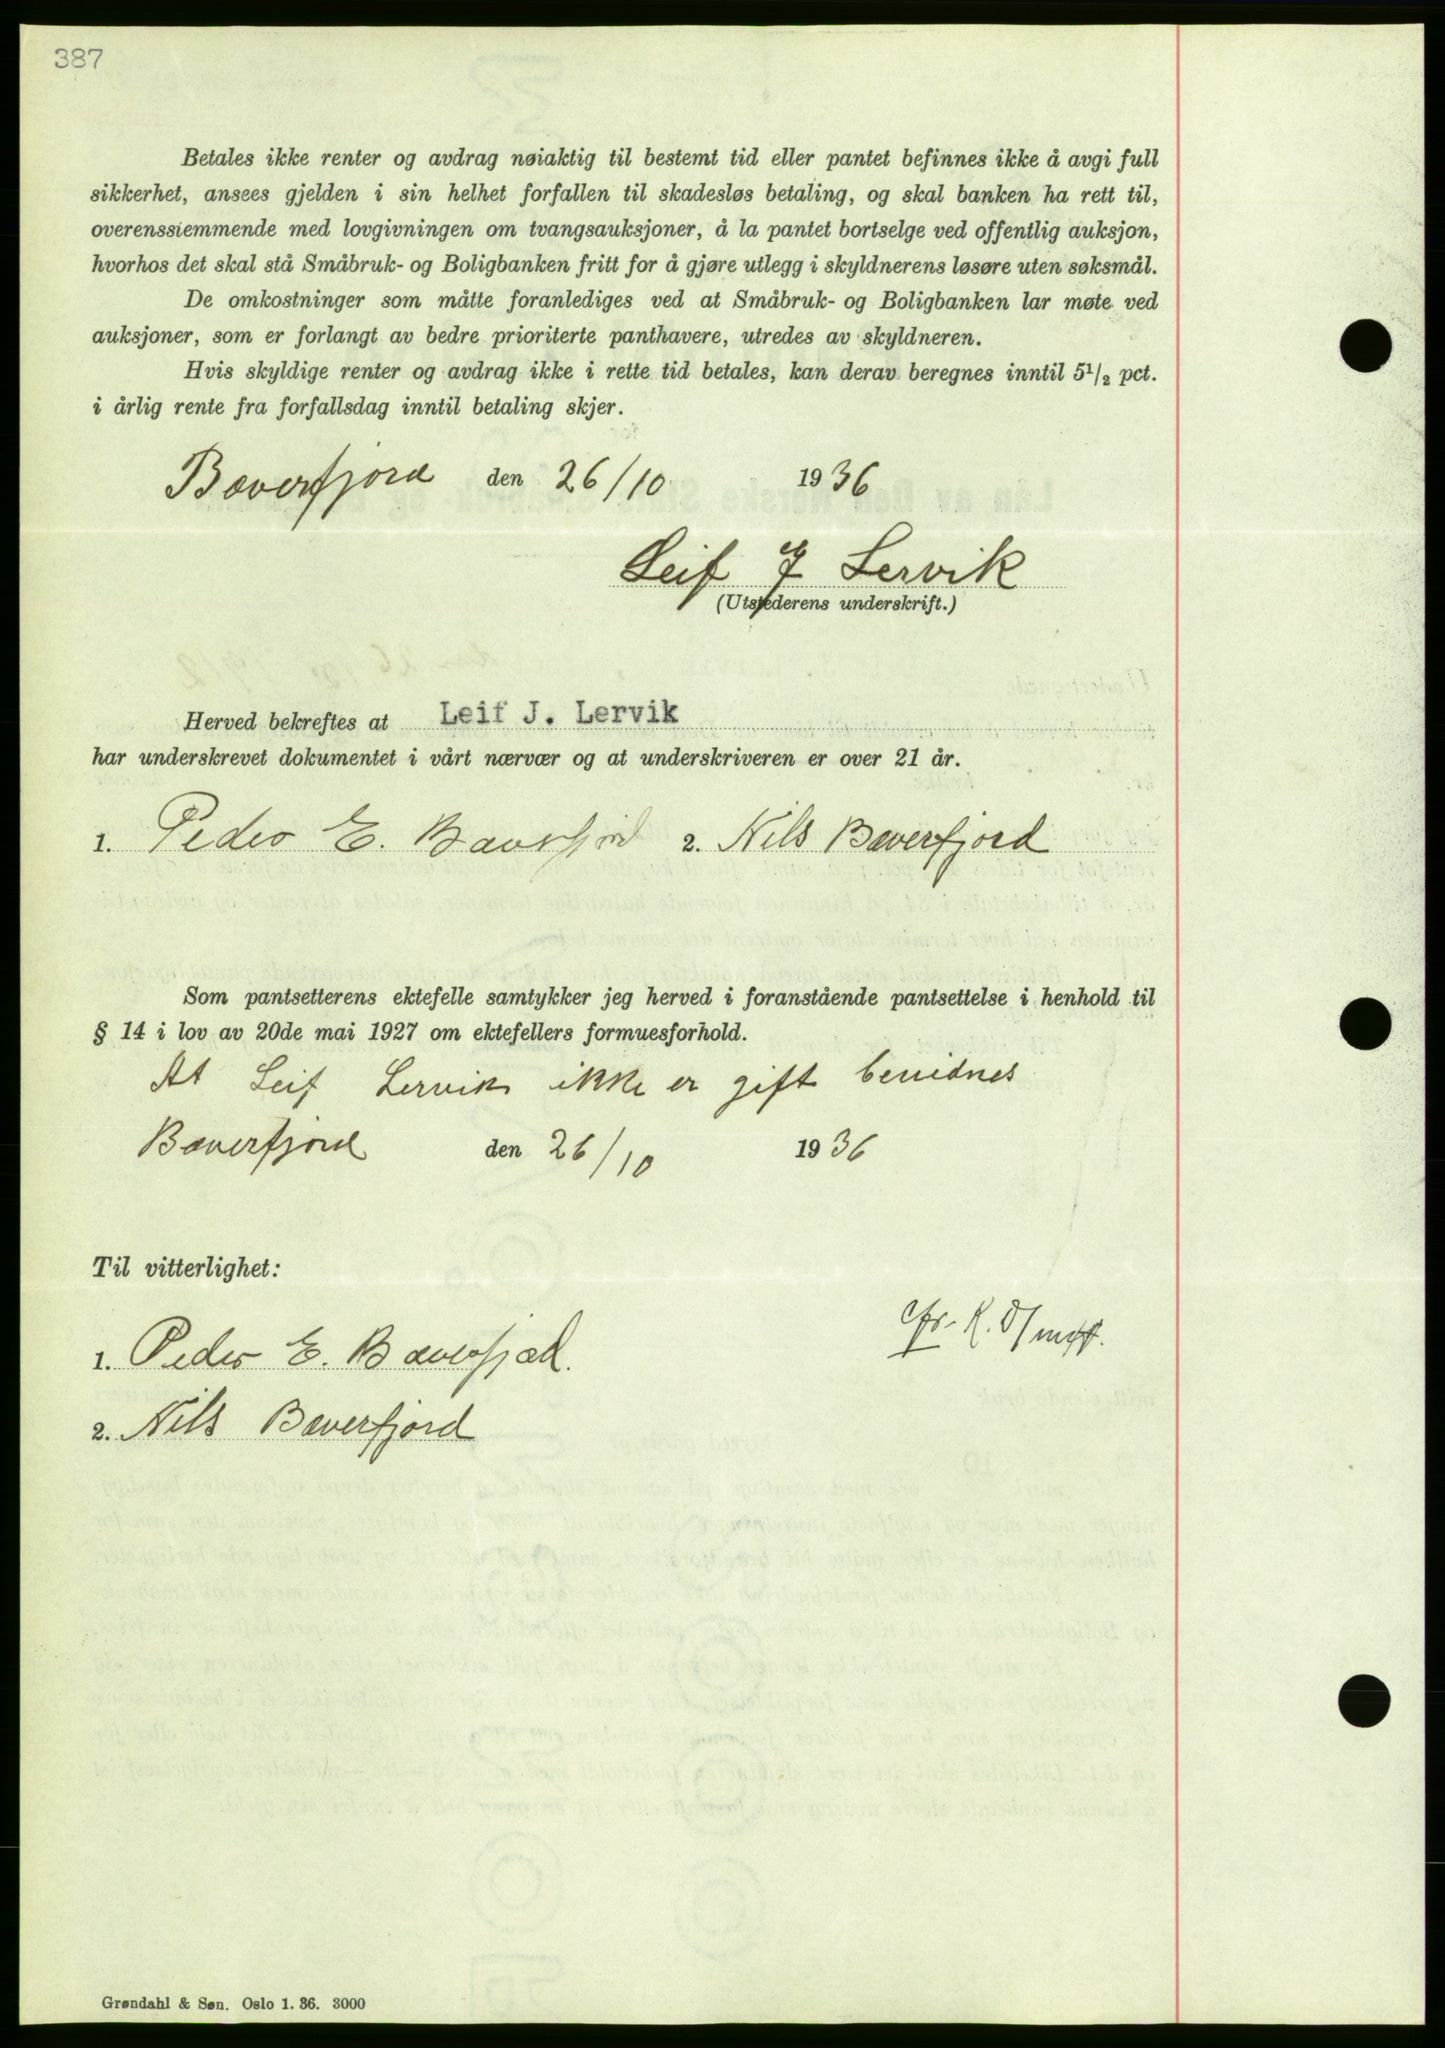 387
Betales ikke renter og avdrag nøiaktig til bestemt tid eller pantet befinnes ikke å avgi full
sikkerhet, ansees gjelden i sin helhet forfallen til skadesløs betaling, og skal banken ha rett til,
overenssiemmende med lovgivningen om tvangsauksjoner, å la pantet bortselge ved offentlig auksjon,
hvorhos det skal stå Småbruk- og Boligbanken fritt for å gjøre utlegg i skyldnerens løsøre uten søksmål.
De omkostninger som måtte foranlediges ved at Småbruk- og Boligbanken lar møte ved
auksjoner, som er forlangt av bedre prioriterte panthavere, utredes av skyldneren.
Hvis skyldige renter og avdrag ikke i rette tid betales, kan derav beregnes inntil 5½ pct.
i årlig rente fra forfallsdag inntil betaling skjer.
Bæverfjord den 26/10 1936
Leif J Lervik
(Utstederens underskrift.)
Herved bekreftes at Leif J. Lervik
har underskrevet dokumentet i vårt nærvær og at underskriveren er over 21 år.
1. Peder E. Bæverfjord 2. Nils Bæverfjord
Som pantsetterens ektefelle samtykker jeg herved i foranstående pantsettelse i henhold til
§ 14 i lov av 20de mai 1927 om ektefellers formuesforhold.
At Leif Lervik ikke er gift bevidnes
Bæverfjord den 26/10 1936
Til vitterlighet:
1. Peder E. Bæverfjord.
2. Nils Bæverfjord
Grøndahl & Søn. Oslo 1. 36. 3000